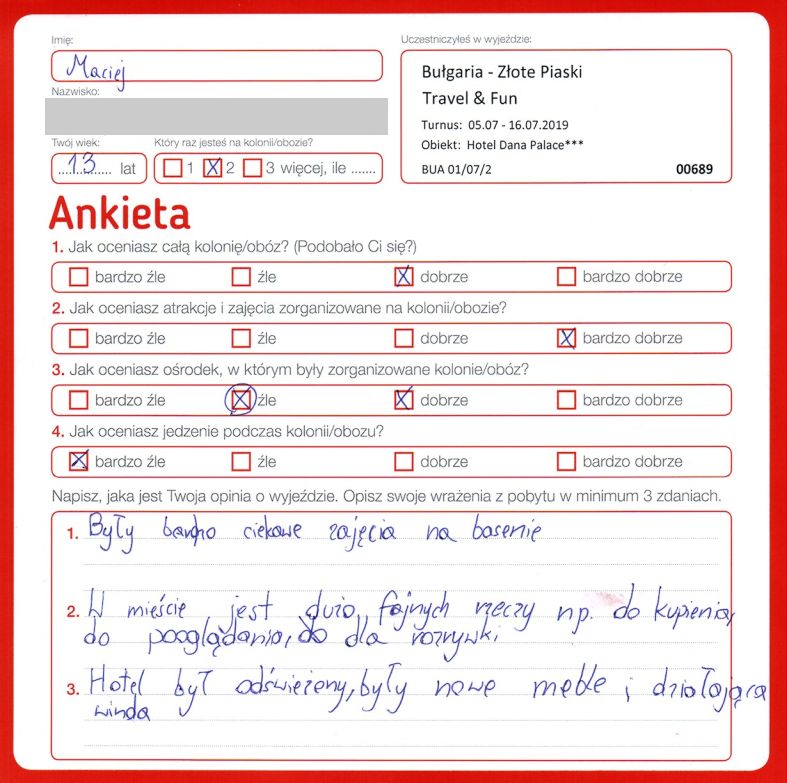 Imię:
Maciej
Nazwisko:
Twój wiek:
13 lat
Który raz jesteś na kolonii/obozie?
1 X 2 3 więcej, ile .......
Uczestniczyłeś w wyjeździe:
Bułgaria - Złote Piaski
Travel & Fun
Turnus: 05.07 - 16.07.2019
Obiekt: Hotel Dana Palace***
BUA 01/07/2 00689
Ankieta
1. Jak oceniasz całą kolonię/obóz? (Podobało Ci się?)
bardzo źle źle X dobrze bardzo dobrze
2. Jak oceniasz atrakcje i zajęcia zorganizowane na kolonii/obozie?
bardzo źle źle dobrze X bardzo dobrze
3. Jak oceniasz ośrodek, w którym były zorganizowane kolonie/obóz?
bardzo źle X źle X dobrze bardzo dobrze
4. Jak oceniasz jedzenie podczas kolonii/obozu?
X bardzo źle źle dobrze bardzo dobrze
Napisz, jaka jest Twoja opinia o wyjeździe. Opisz swoje wrażenia z pobytu w minimum 3 zdaniach.
1. Były bardzo ciekawe zajęcia na basenie
2. W mieście jest dużo fajnych rzeczy np. do kupienia,
do pooglądania, dla rozrywki
3. Hotel był odświeżony, były nowe meble i działająca
winda